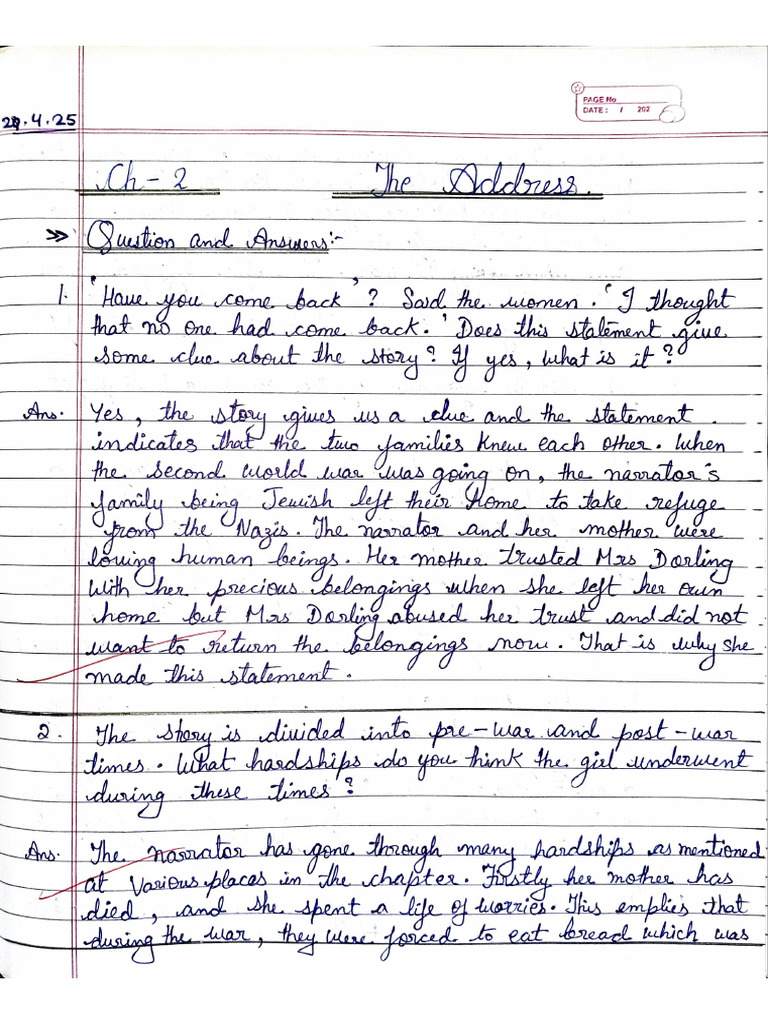 PAGE No
DATE : / 202
29.4.25
Ch-2 The Address.
>> Question and Answers:-
1. 'Have you come back'? Said the women. 'I thought
that no one had come back.' Does this statement give
some clue about the story? If yes, what is it?
Ans. Yes, the story gives us a clue and the statement
indicates that the two families knew each other. When
the second world war was going on, the narrator's
family being Jewish left their home to take refuge
from the Nazis. The narrator and her mother were
loving human beings. Her mother trusted Mrs Dorling
with her precious belongings when she left her own
home but Mrs Dorling abused her trust and did not
want to return the belongings now. That is why she
made this statement.
2. The story is divided into pre-war and post-war
times. What hardships do you think the girl underwent
during these times?
Ans. The narrator has gone through many hardships as mentioned
at various places in the chapter. Firstly her mother has
died, and she spent a life of worries. This emplies that
during the war, they were forced to eat bread which was